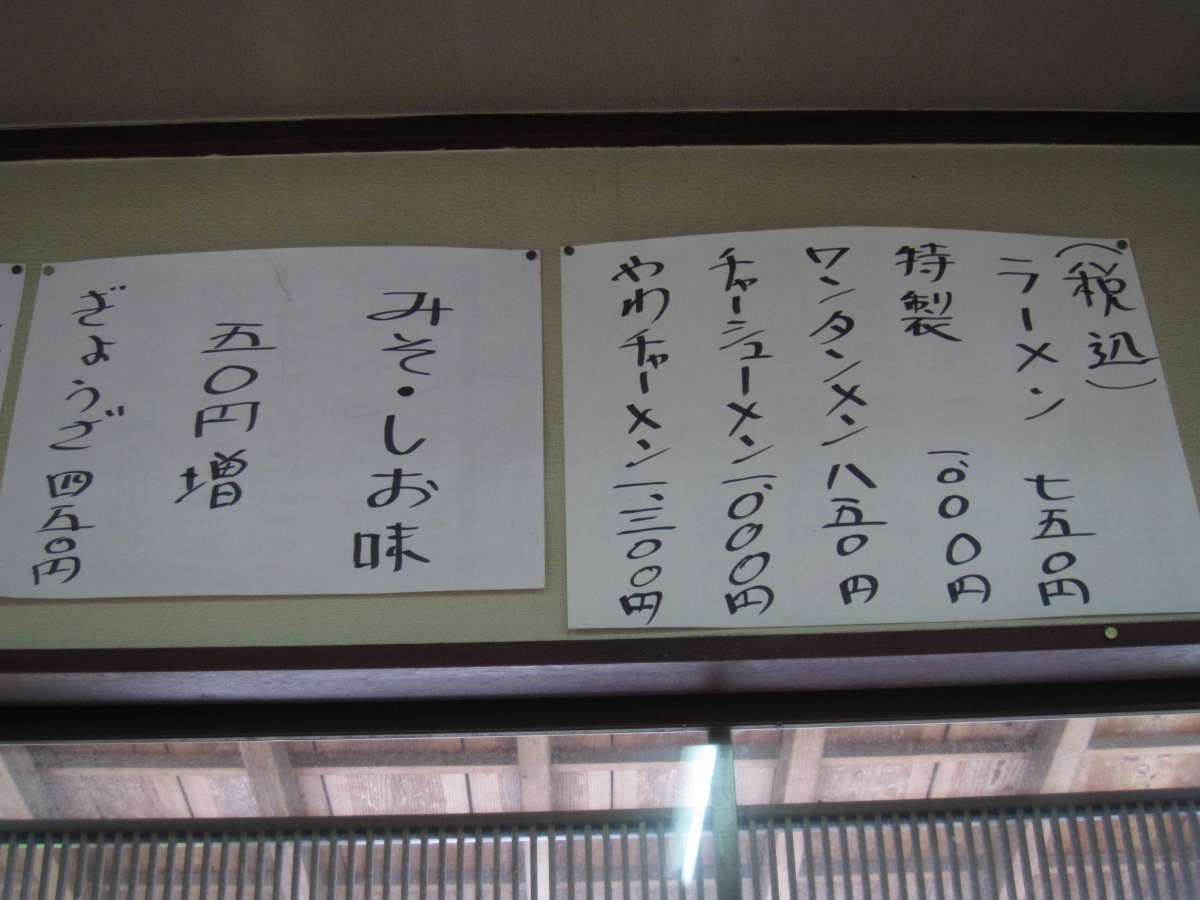 （税込）
ラーメン 七五〇円
特製 一、〇〇〇円
ワンタンメン 八五〇円
チャーシューメン 一、〇〇〇円
やわチャーメン 一、三〇〇円
みそ・しお味
五〇円増
ぎょうざ 四五〇円